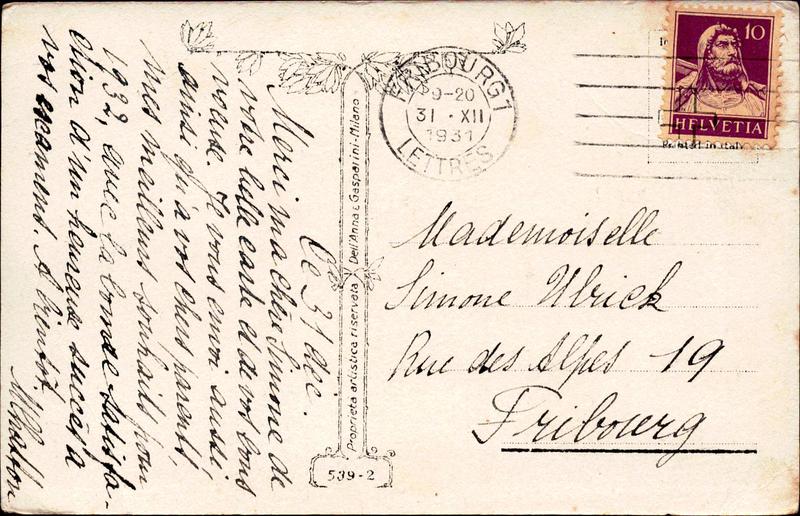 Ce 31 déc.
Merci ma chère Simone de
votre belle carte et de vos bons
voeux. Je vous envoi aussi
ainsi qu'à vos chers parents,
mes meilleurs souhaits pour
1932, avec la grande satisfa-
ction d'un heureux succès à
vos examens. A bientôt.
Proprietà artistica riservata Dell'Anna & Gasparini-Milano
539-2
FRIBOURG 1
9-20
31 · XII
1931
LETTRES
10
HELVETIA
Printed in Italy
Mademoiselle
Simone Ulrick
Rue des Alpes 19
Fribourg